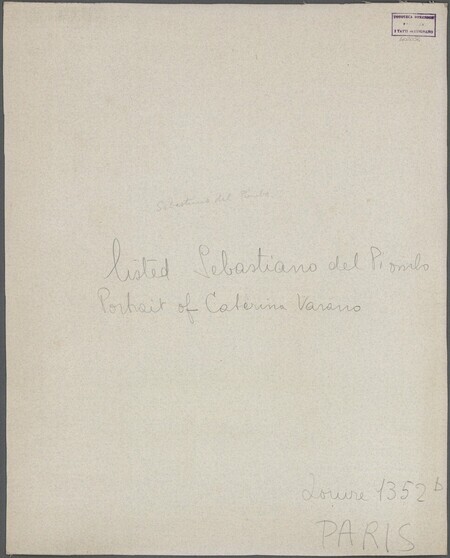 Sebastiano del Piombo
listed Sebastiano del Piombo
Portrait of Caterina Varano
Louvre 1352 b
PARIS